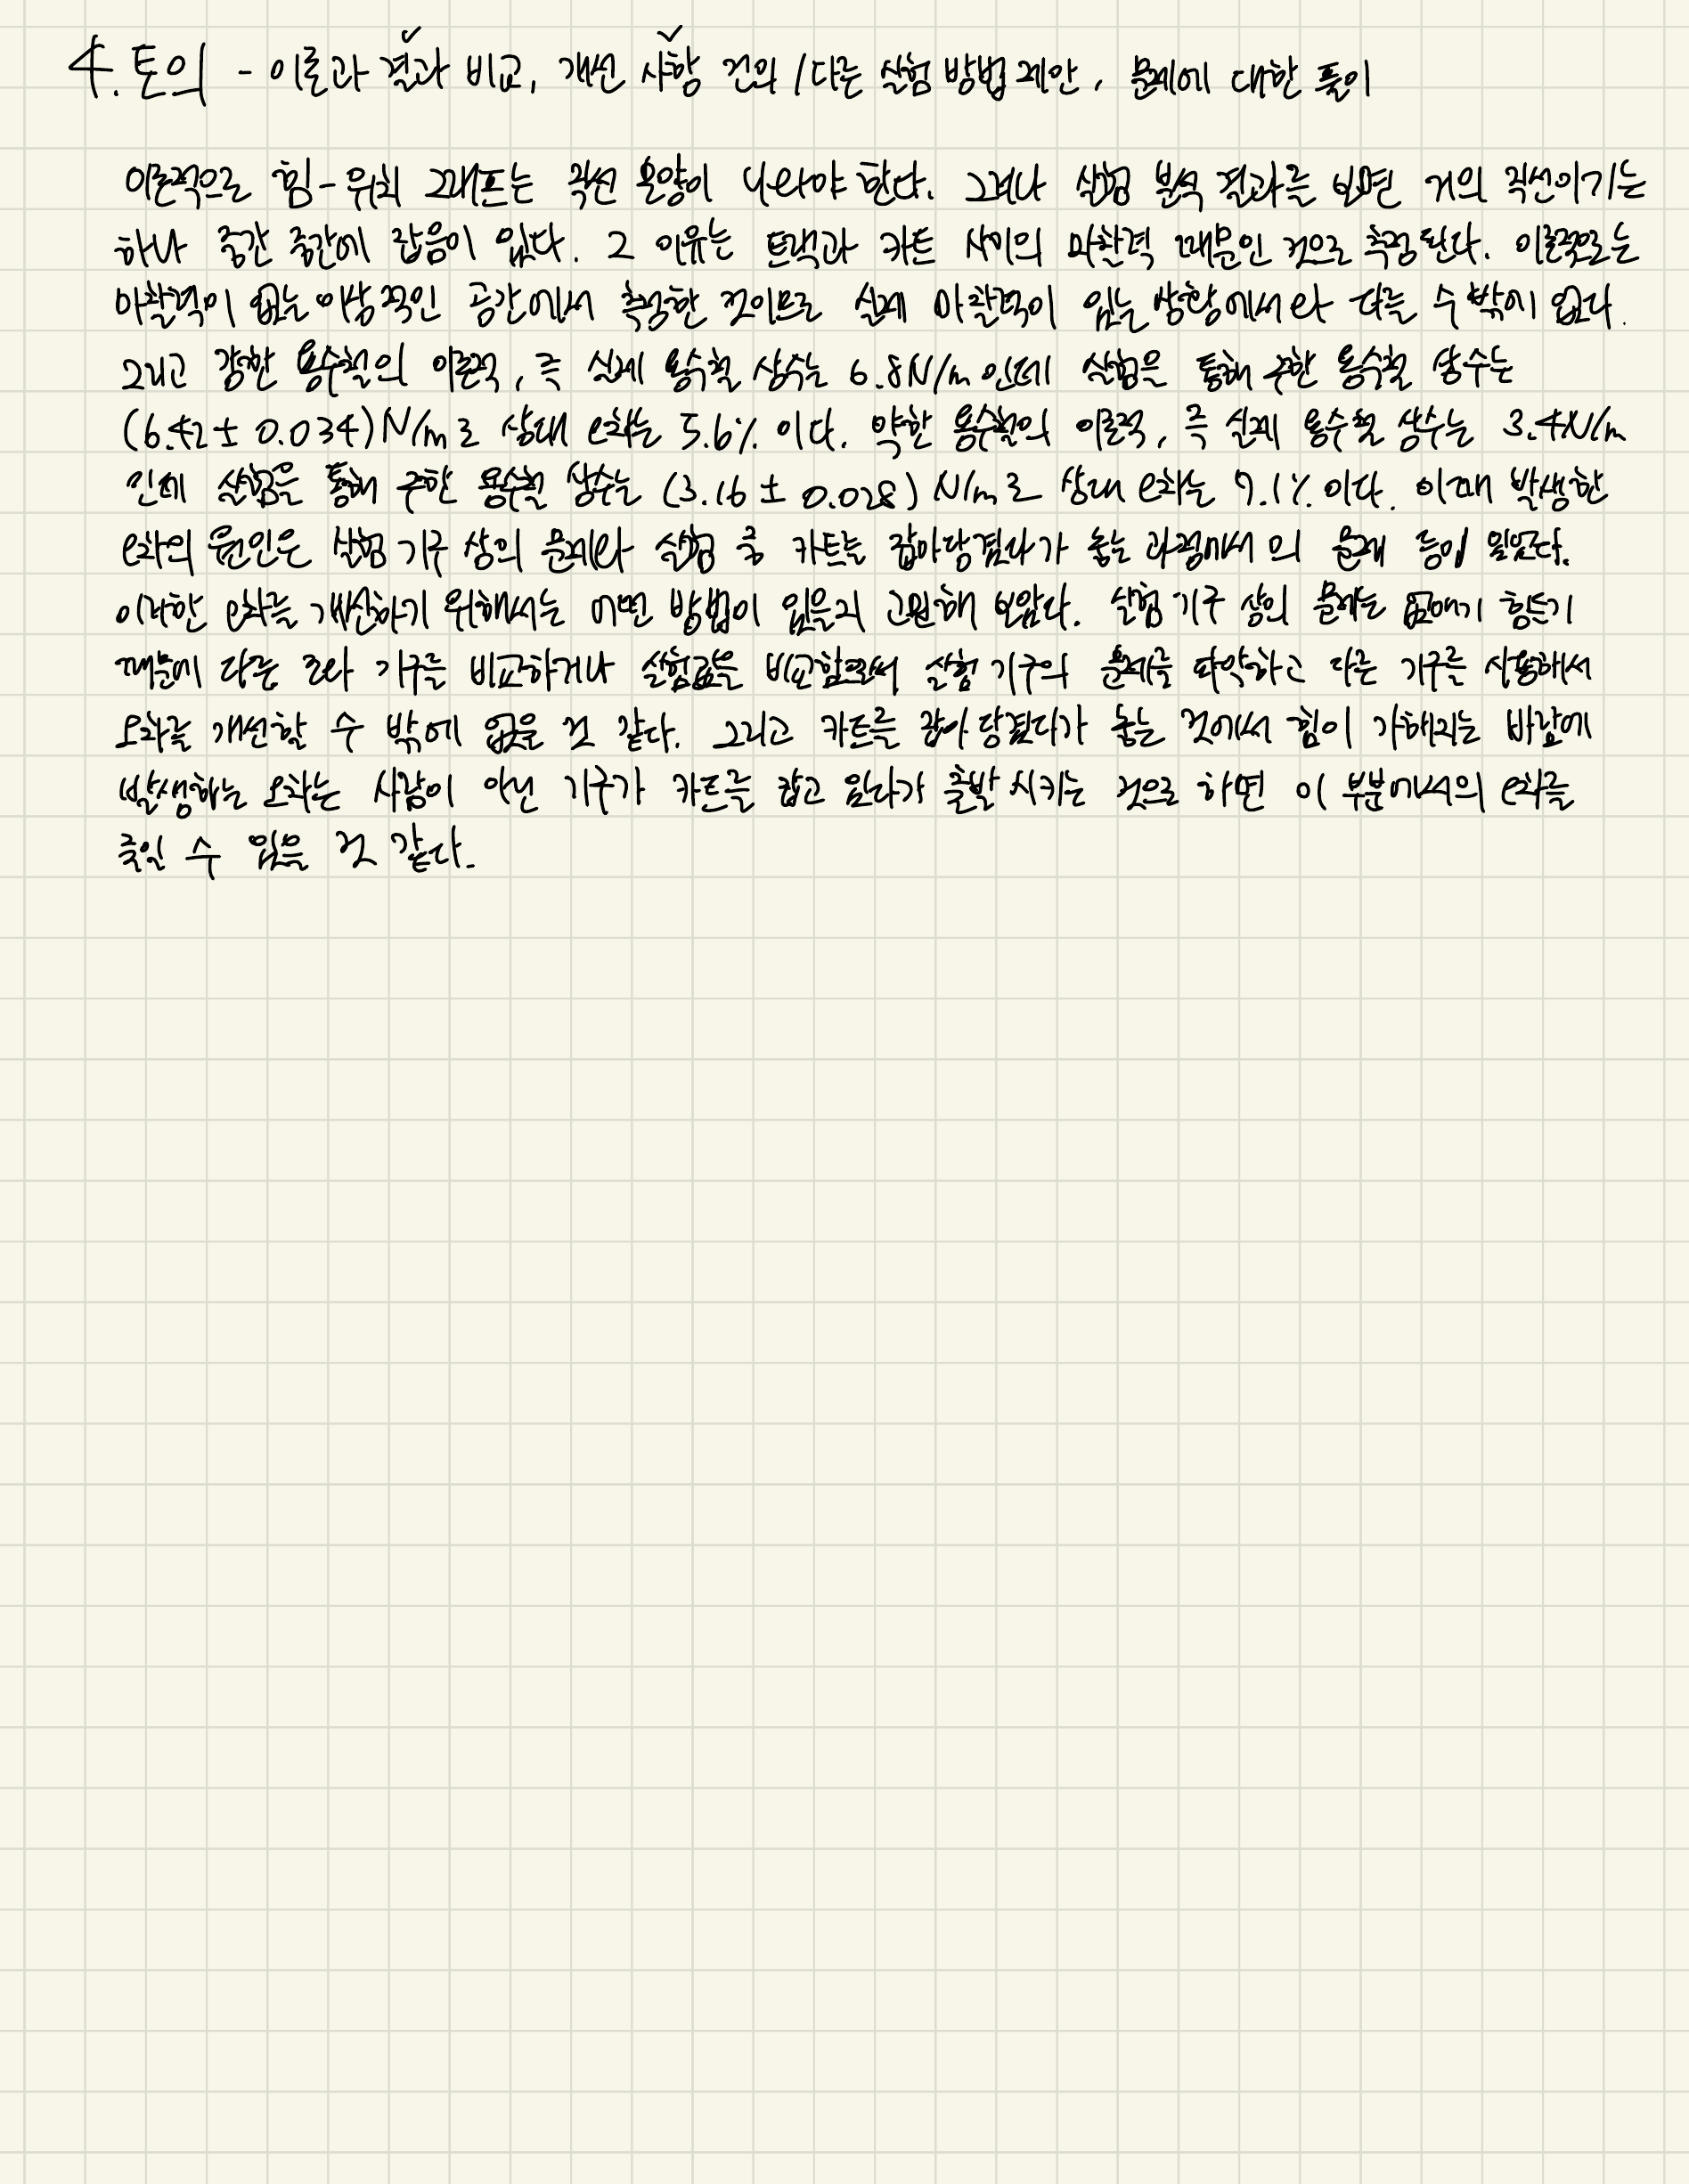 4. 토의 - 이론과 결과 비교, 개선 사항 건의 / 다른 실험 방법 제안, 문제에 대한 풀이
이론적으로 힘-위치 그래프는 직선 모양이 나와야 한다. 그러나 실험 분석 결과를 보면 거의 직선이기는
하나 중간 중간에 잡음이 있다. 그 이유는 트랙과 카트 사이의 마찰력 때문인 것으로 측정된다. 이론적으로는
마찰력이 없는 이상적인 공간에서 측정한 것이므로 실제 마찰력이 있는 상황에서와 다를 수 밖에 없다.
그리고 강한 용수철의 이론적, 즉 실제 용수철 상수는 6.8N/m 인데 실험을 통해 구한 용수철 상수는
(6.42 ± 0.034)N/m로 상대 오차는 5.6% 이다. 약한 용수철의 이론적, 즉 실제 용수철 상수는 3.4N/m
인데 실험을 통해 구한 용수철 상수는 (3.16 ± 0.028) N/m로 상대 오차는 7.1% 이다. 이때 발생한
오차의 원인은 실험 기구 상의 문제와 실험 중 카트를 잡아당겼다가 놓는 과정에서의 문제 등이 있었다.
이러한 오차를 개선하기 위해서는 어떤 방법이 있을지 고민해 보았다. 실험 기구 상의 문제는 없애기 힘든기
때문에 다른 조와 기구를 비교하거나 실험값을 비교함으로써 실험 기구의 문제를 파악하고 다른 기구를 사용해서
오차를 개선할 수 밖에 없을 것 같다. 그리고 카트를 잡아 당겼다가 놓는 것에서 힘이 가해지는 바람에
발생하는 오차는 사람이 아닌 기구가 카트를 잡고 있다가 출발 시키는 것으로 하면 이 부분에서의 오차를
줄일 수 있을 것 같다.